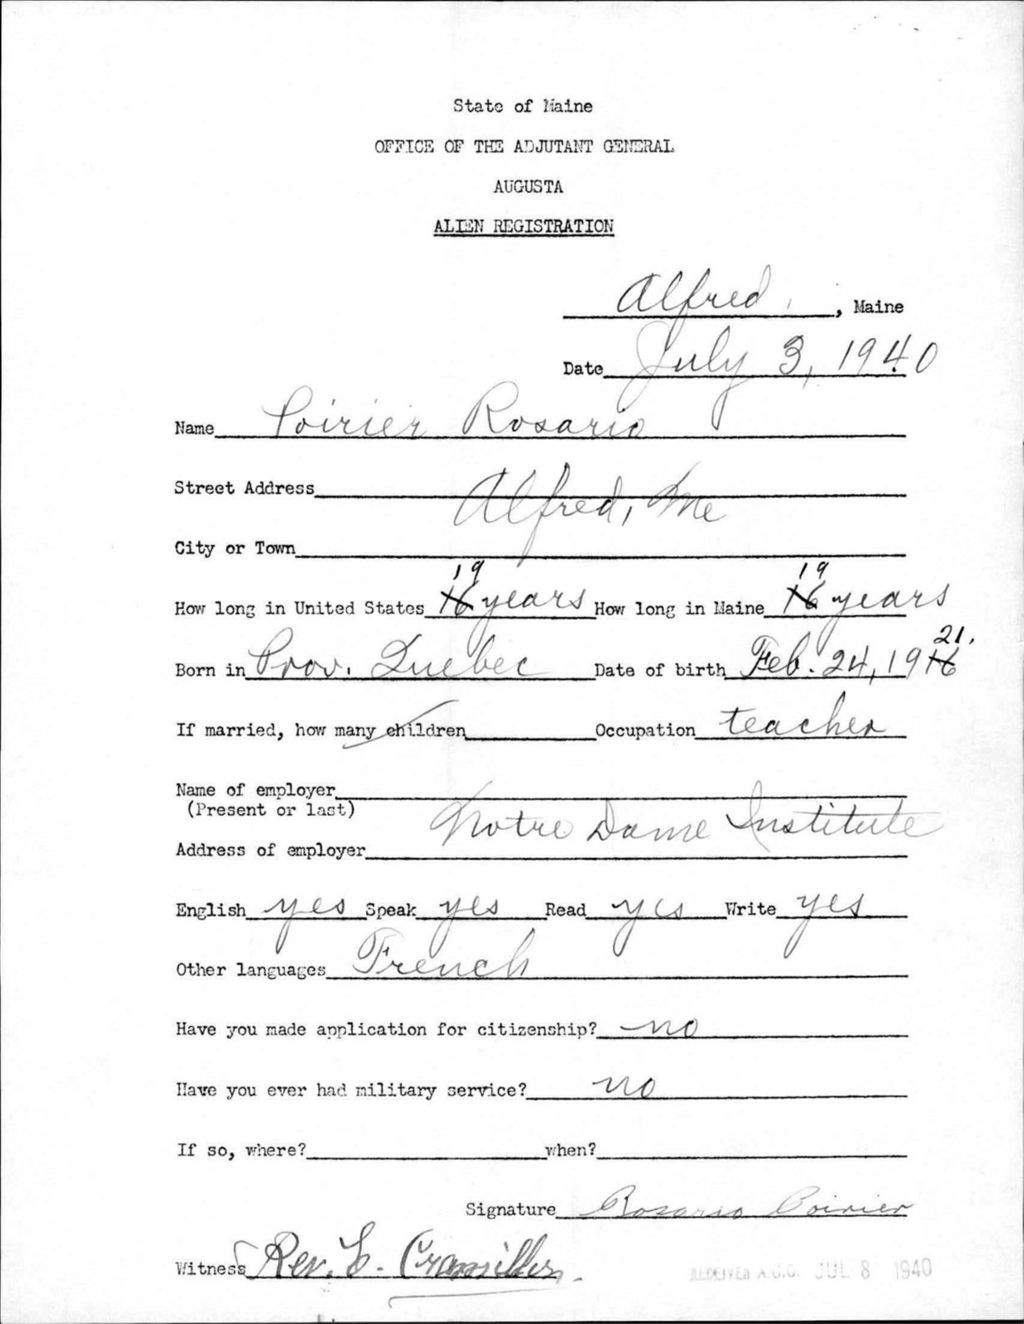 State of Maine
OFFICE OF THE ADJUTANT GENERAL
AUGUSTA
ALIEN REGISTRATION
Alfred, Maine
Date July 3, 1940
Name Poirier Rosario
Street Address
Alfred, Me
City or Town
19 19
How long in United States 16 years How long in Maine 16 years
21.
Born in Prov. Quebec Date of birth Feb. 24, 1916
If married, how many children Occupation teacher
Name of employer
(Present or last)
Notre Dame Institute
Address of employer
English yes Speak yes Read yes Write yes
Other languages French
Have you made application for citizenship? no
Have you ever had military service? no
If so, where? when?
Signature Rosario Poirier
Witness Rev. L.
RECEIVED A.G.O. JUL 8 1940